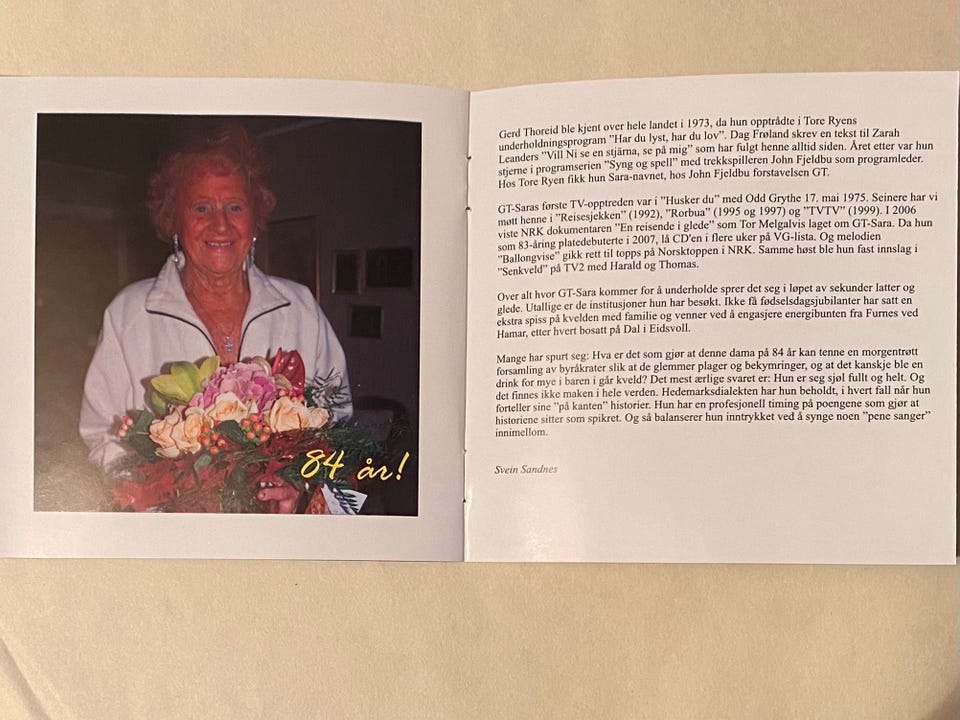 84 år!
Gerd Thoreid ble kjent over hele landet i 1973, da hun opptrådte i Tore Ryens
underholdningsprogram "Har du lyst, har du lov". Dag Frøland skrev en tekst til Zarah
Leanders "Vill Ni se en stjärna, se på mig" som har fulgt henne alltid siden. Året etter var hun
stjerne i programserien "Syng og spell" med trekkspilleren John Fjeldbu som programleder.
Hos Tore Ryen fikk hun Sara-navnet, hos John Fjeldbu forstavelsen GT.
GT-Saras første TV-opptreden var i "Husker du" med Odd Grythe 17. mai 1975. Seinere har vi
møtt henne i "Reisesjekken" (1992), "Rorbua" (1995 og 1997) og "TVTV" (1999). I 2006
viste NRK dokumentaren "En reisende i glede" som Tor Melgalvis laget om GT-Sara. Da hun
som 83-åring platedebuterte i 2007, lå CD'en i flere uker på VG-lista. Og melodien
"Ballongvise" gikk rett til topps på Norsktoppen i NRK. Samme høst ble hun fast innslag i
"Senkveld" på TV2 med Harald og Thomas.
Over alt hvor GT-Sara kommer for å underholde sprer det seg i løpet av sekunder latter og
glede. Utallige er de institusjoner hun har besøkt. Ikke få fødselsdagsjubilanter har satt en
ekstra spiss på kvelden med familie og venner ved å engasjere energibunten fra Furnes ved
Hamar, etter hvert bosatt på Dal i Eidsvoll.
Mange har spurt seg: Hva er det som gjør at denne dama på 84 år kan tenne en morgentrøtt
forsamling av byråkrater slik at de glemmer plager og bekymringer, og at det kanskje ble en
drink for mye i baren i går kveld? Det mest ærlige svaret er: Hun er seg sjøl fullt og helt. Og
det finnes ikke maken i hele verden. Hedemarksdialekten har hun beholdt, i hvert fall når hun
forteller sine "på kanten" historier. Hun har en profesjonell timing på poengene som gjør at
historiene sitter som spikret. Og så balanserer hun inntrykket ved å synge noen "pene sanger"
innimellom.
Svein Sandnes